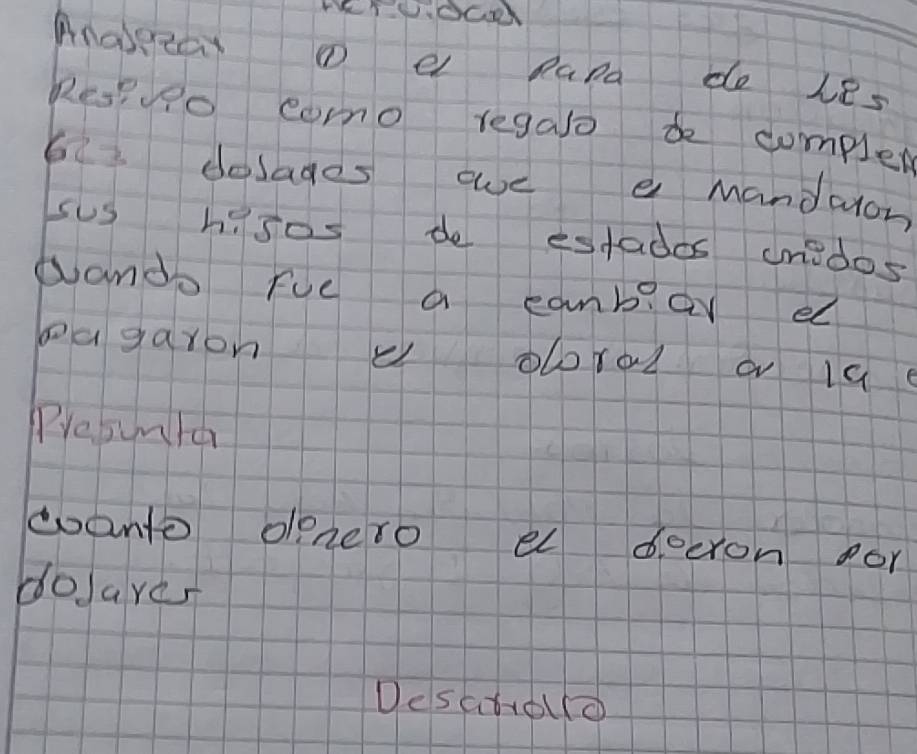 Analizar ① el papa de Lis
Resivio como regalo de complea
623 dolares que el Mandaron
sus hijos de estados unidos
Cuando Fue a canbiar el
pagaron el dolral a la
Presunta
cuanto dinero el dieron por
dolares
Desarrollo